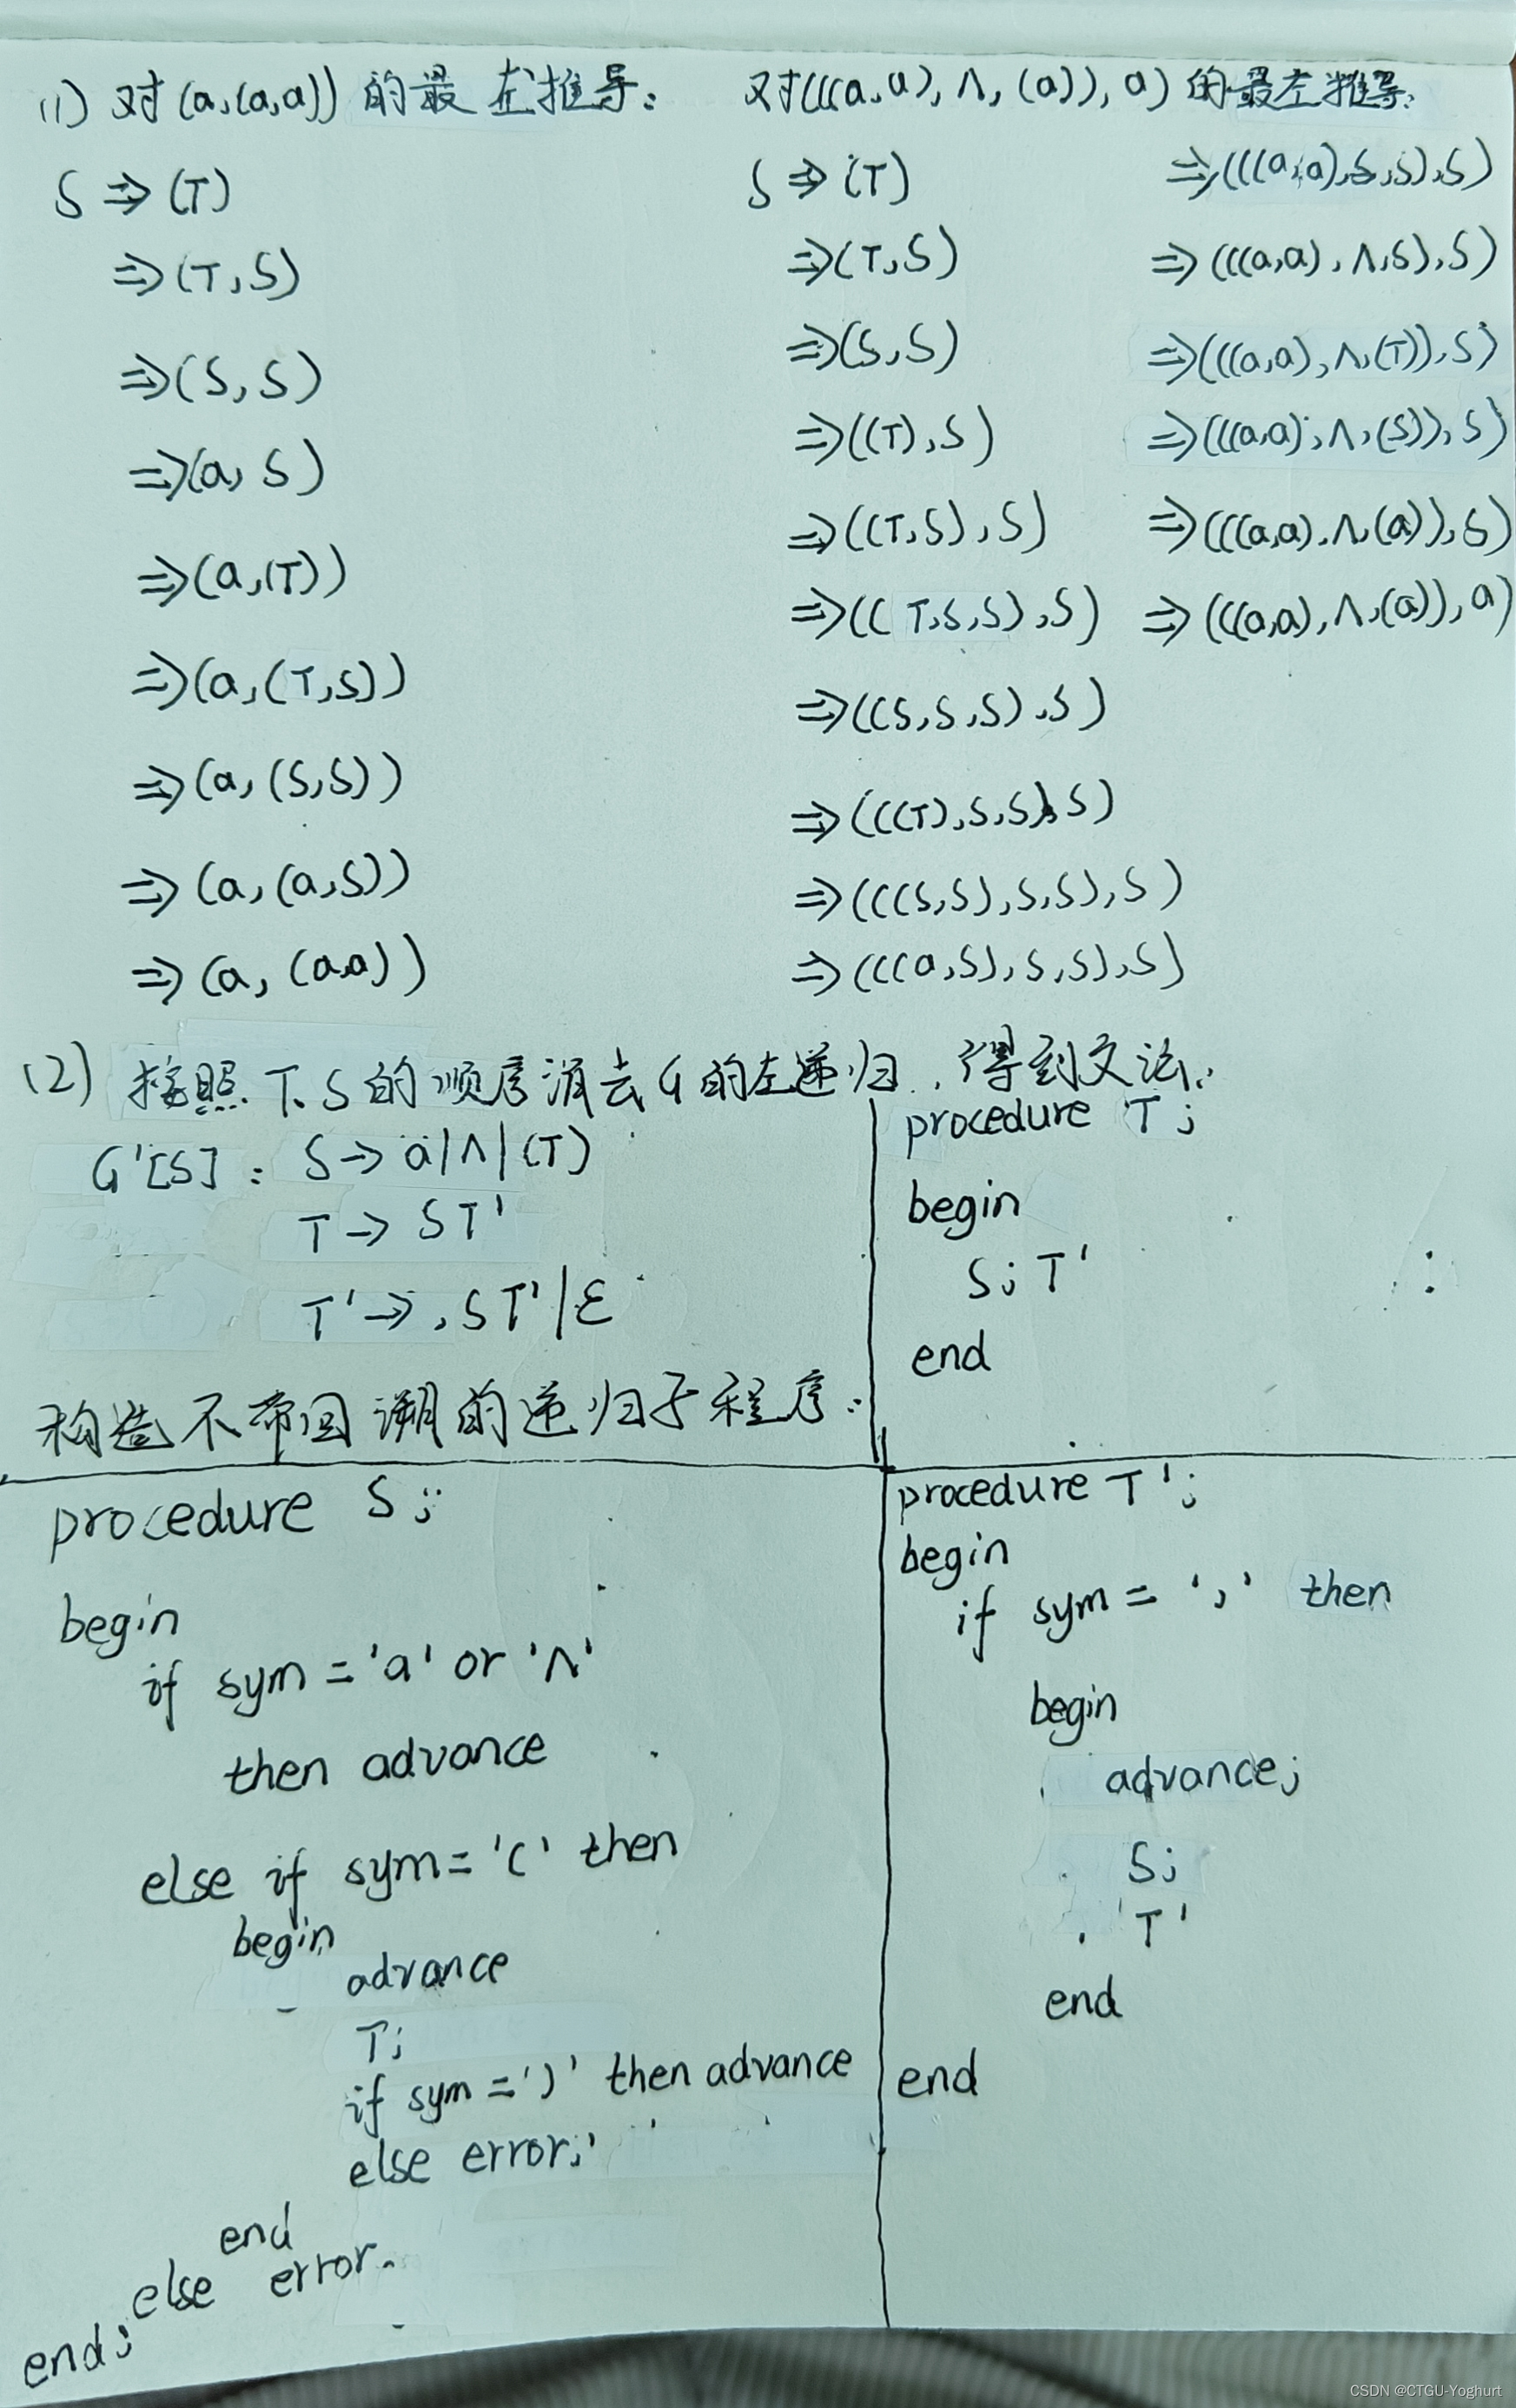 (1) 对(a,(a,a))的最左推导:
S⇒(T)
⇒(T,S)
⇒(S,S)
⇒(a,S)
⇒(a,(T))
⇒(a,(T,S))
⇒(a,(S,S))
⇒(a,(a,S))
⇒(a,(a,a))
对(((a,a),∧,(a)),a)的最左推导:
S⇒(T)
⇒(T,S)
⇒(S,S)
⇒((T),S)
⇒((T,S),S)
⇒((T,S,S),S)
⇒((S,S,S),S)
⇒(((T),S,S),S)
⇒(((S,S),S,S),S)
⇒(((a,S),S,S),S)
⇒(((a,a),S,S),S)
⇒(((a,a),∧,S),S)
⇒(((a,a),∧,(T)),S)
⇒(((a,a),∧,(S)),S)
⇒(((a,a),∧,(a)),S)
⇒(((a,a),∧,(a)),a)
(2) 按照T、S的顺序消去G的左递归,得到文法:
G'[S]: S→a|∧|(T)
T→ST'
T'→,ST'|ε
构造不带回溯的递归子程序:
procedure T;
begin
S; T'
end
procedure S;
begin
if sym='a' or '∧'
then advance
else if sym='(' then
begin
advance
T;
if sym=')' then advance
else error;
end
else error.
end;
procedure T';
begin
if sym=',' then
begin
advance;
S;
T'
end
end
CSDN @CTGU-Yoghurt